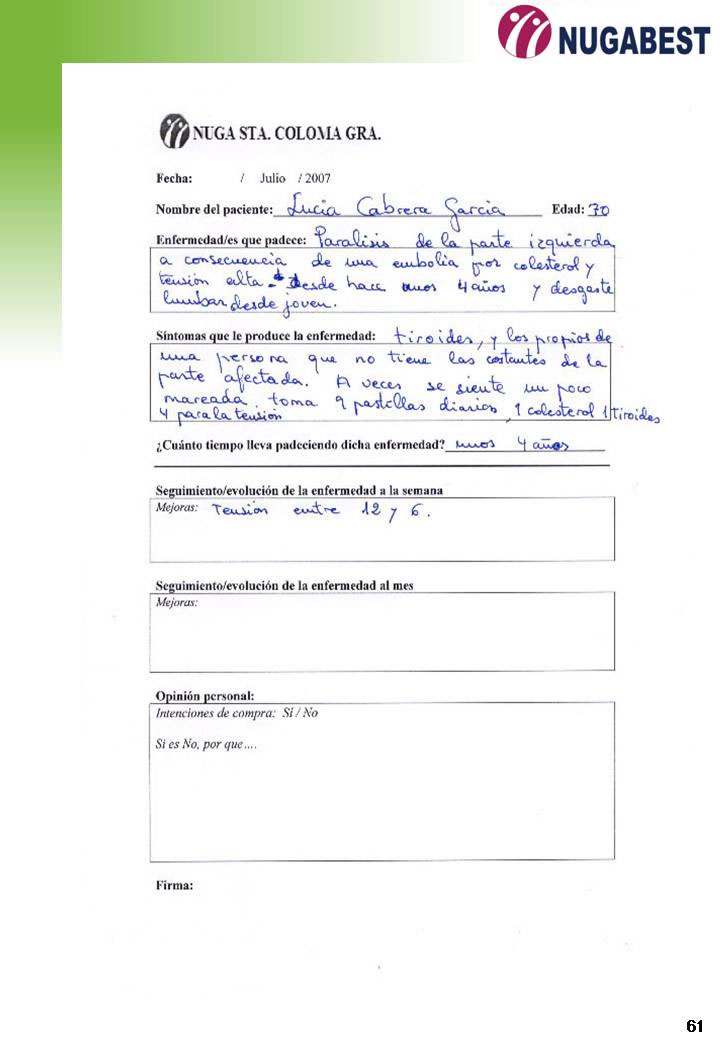 NUGABEST
NUGA STA. COLOMA GRA.
Fecha: / Julio / 2007
Nombre del paciente: Lucia Cabrera Garcia Edad: 70
Enfermedad/es que padece: Paralisis de la parte izquierda
a consecuencia de una embolia por colesterol y
tensión alta desde hace unos 4 años y desgaste
lumbar desde joven.
Síntomas que le produce la enfermedad: tiroides, y los propios de
una persona que no tiene las costantes de la
parte afectada. A veces se siente un poco
mareada. toma 9 pastillas diarias, 1 colesterol 1 tiroides
4 para la tensión
¿Cuánto tiempo lleva padeciendo dicha enfermedad? unos 4 años
Seguimiento/evolución de la enfermedad a la semana
Mejoras: Tensión entre 12 y 6.
Seguimiento/evolución de la enfermedad al mes
Mejoras:
Opinión personal:
Intenciones de compra: Si / No
Si es No, por que....
Firma:
61